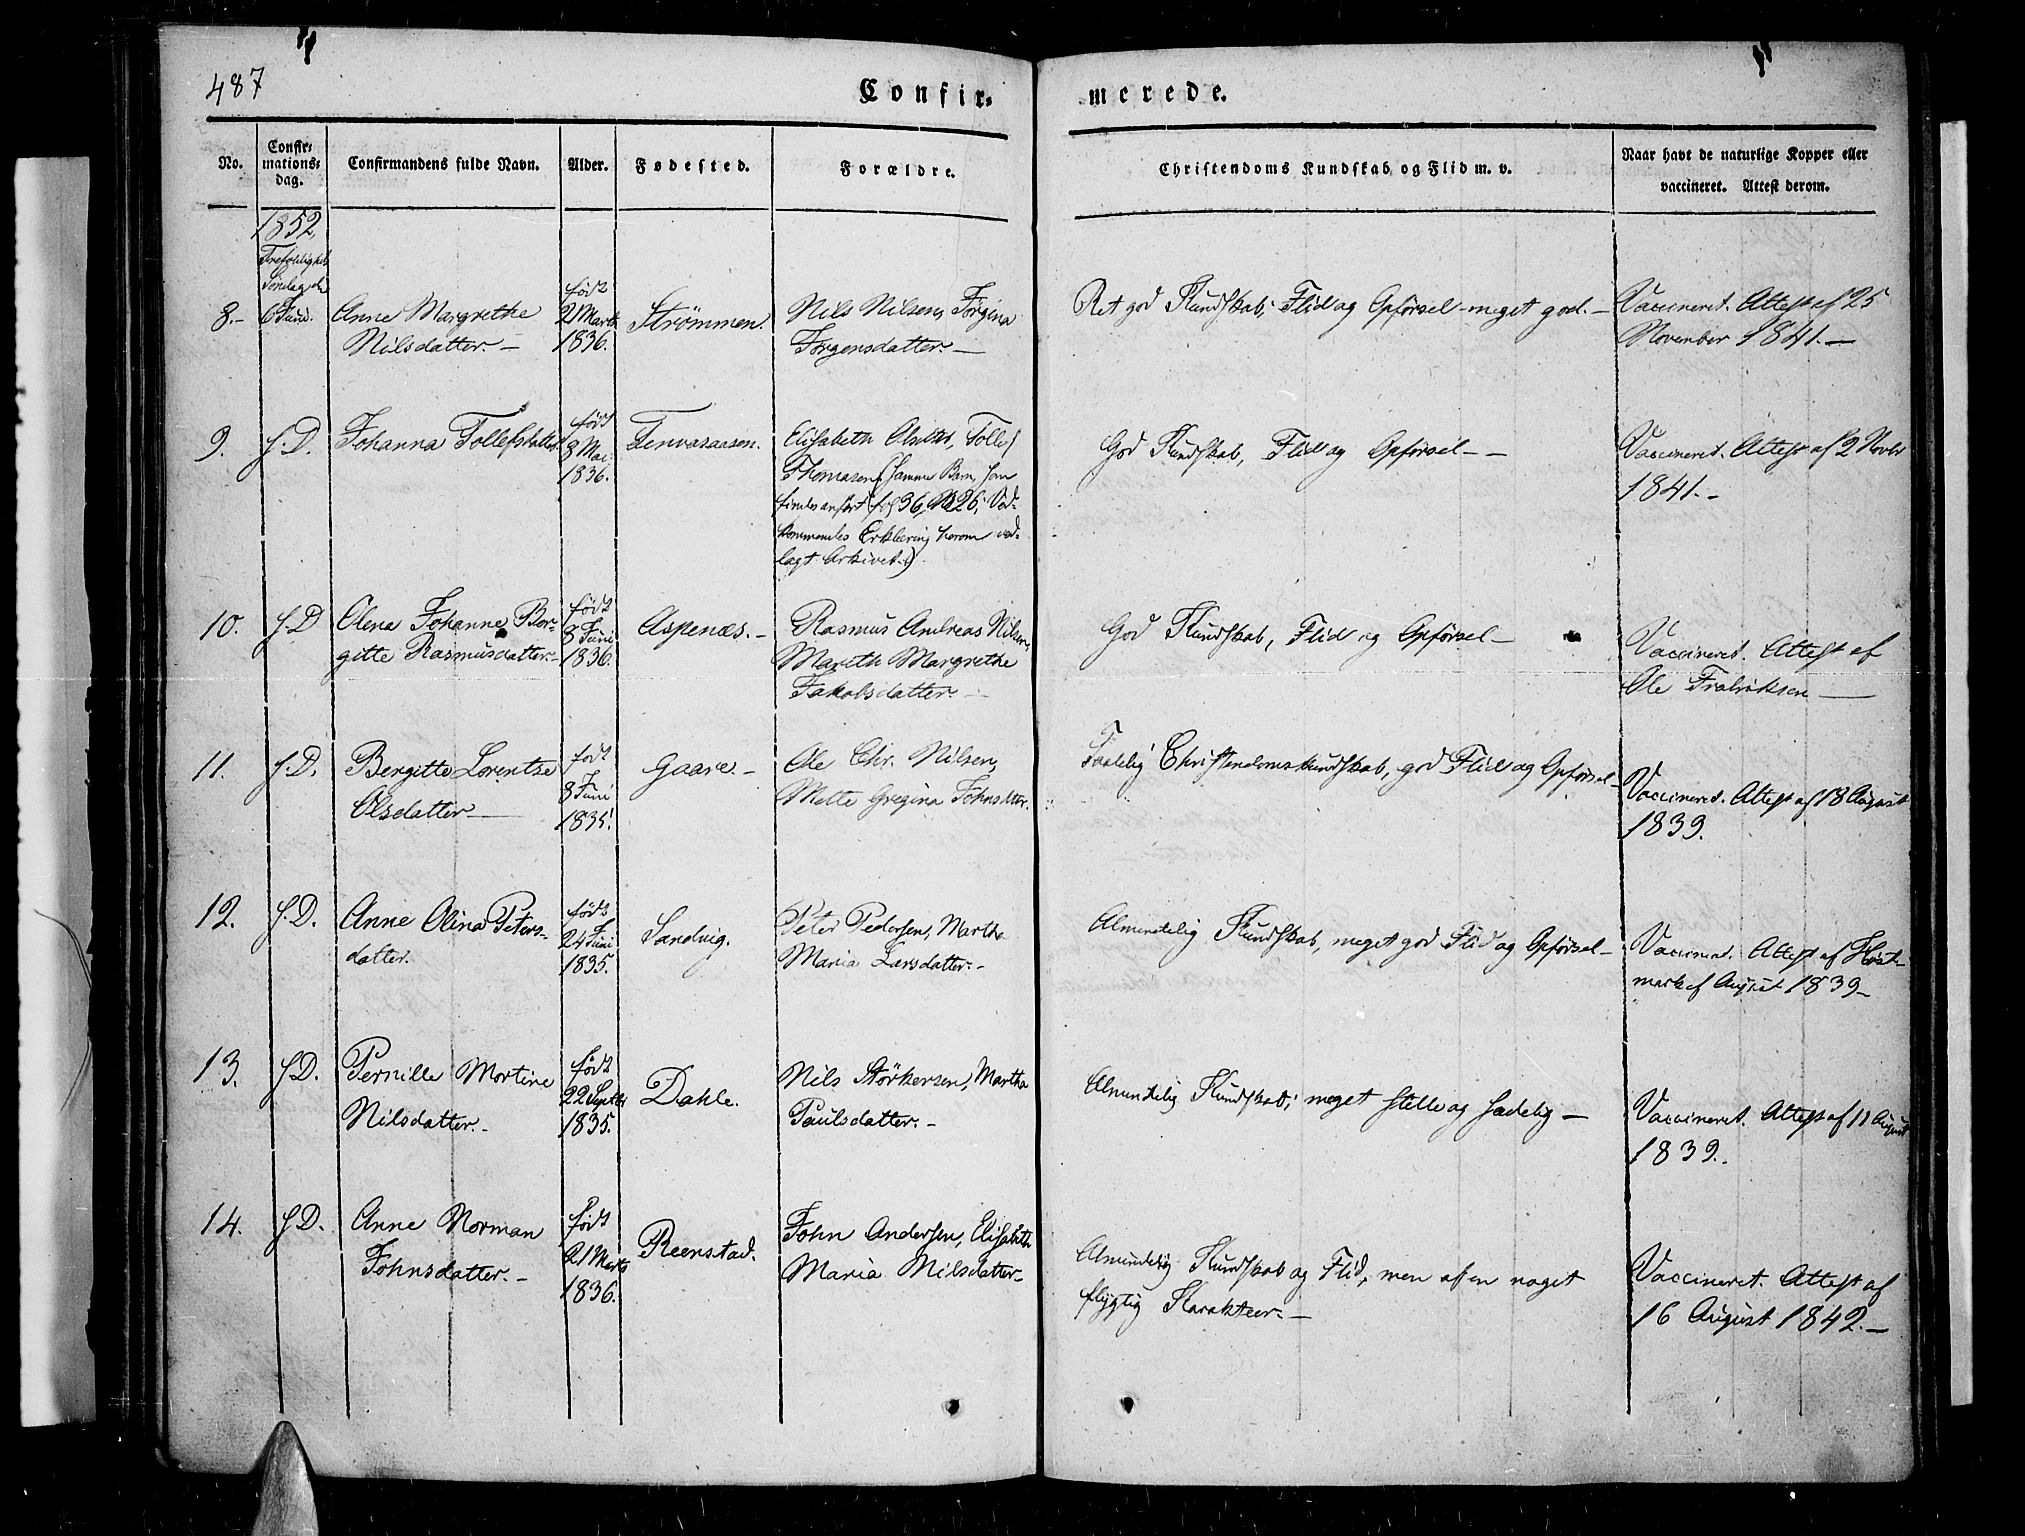 487
Confir-
merede.
No.
Confir-
mations-
dag.
Confirmandens fulde Navn.
Alder.
Fødested.
Forældre.
Christendoms Kundskab og Flid m. v.
Naar havt de naturlige Kopper eller
vaccineret. Attest derom.
1852.
Trefoldigheds
Søndag d.
6 Juni.
8.-
Anne Margrethe
Nilsdatter. -
født
21 Marts
1836.
Strömmen.
Nils Nilsen, Jørgina
Jørgensdatter. -
Ret god Kundskab, Flid og Opførsel meget god. -
Vaccineret. Attest af 25
November 1841. -
9.
s. D.
Johanna Tollefsdatter
født
8 Mai
1836.
Elisabeth Olsdtter, Tollef
Thomasen (samme Barn, som
findes anført fol 36, No 26, Ved-
kommendes Erklæring herom ved-
lagt Arkivet.)
God Kundskab, Flid og Opførsel - -
Vaccineret. Attest af 2 Novbr
1841. -
10.
s. D
Olena Johanne Ber-
gitte Rasmusdatter. -
født
8 Juni
1836.
Aspenæs. -
Rasmus Andreas Nilsen,
Mareth Margrethe
Jakobsdatter -
God Kundskab, Flid og Opførsel -
Vaccineret. Attest af
Ole Fredriksen -
11.
s. D.
Bergitte Lorentse
Olsdatter -
født
8 Juni
1835.
Gaare. -
Ole Chr. Nilsen,
Mette Gregina Johnsdtter.
Taalelig Christendomskundskab, god Flid og Opførsel -
Vaccineret. Attest af 18 August
1839.
12.
s. D.
Anne Olina Peters-
datter.
født
24 Juni
1835.
Sandvig.
Peter Pedersen, Martha
Maria Larsdatter. -
Almindelig Kundskab, meget god Flid og Opførsel -
Vaccineret. Attest af Høst-
mark af August 1839 -
13.
s. D.
Pernille Mortine
Nilsdatter. -
født
22 Septbr
1835.
Dahle.
Nils Størkersen, Martha
Paulsdatter. -
Almindelig Kundskab, meget stille og sædelig -
Vaccineret. Attest af 11 August
1839. -
14.
s. D.
Anne Norman
Johnsdatter. -
født
21 Marts
1836.
Reenstad.
John Andersen, Elisabeth
Maria Nilsdatter -
Almindelig Kundskab og Flid, men af en noget
flygtig Karakteer. -
Vaccineret. Attest af
16 August 1842. -